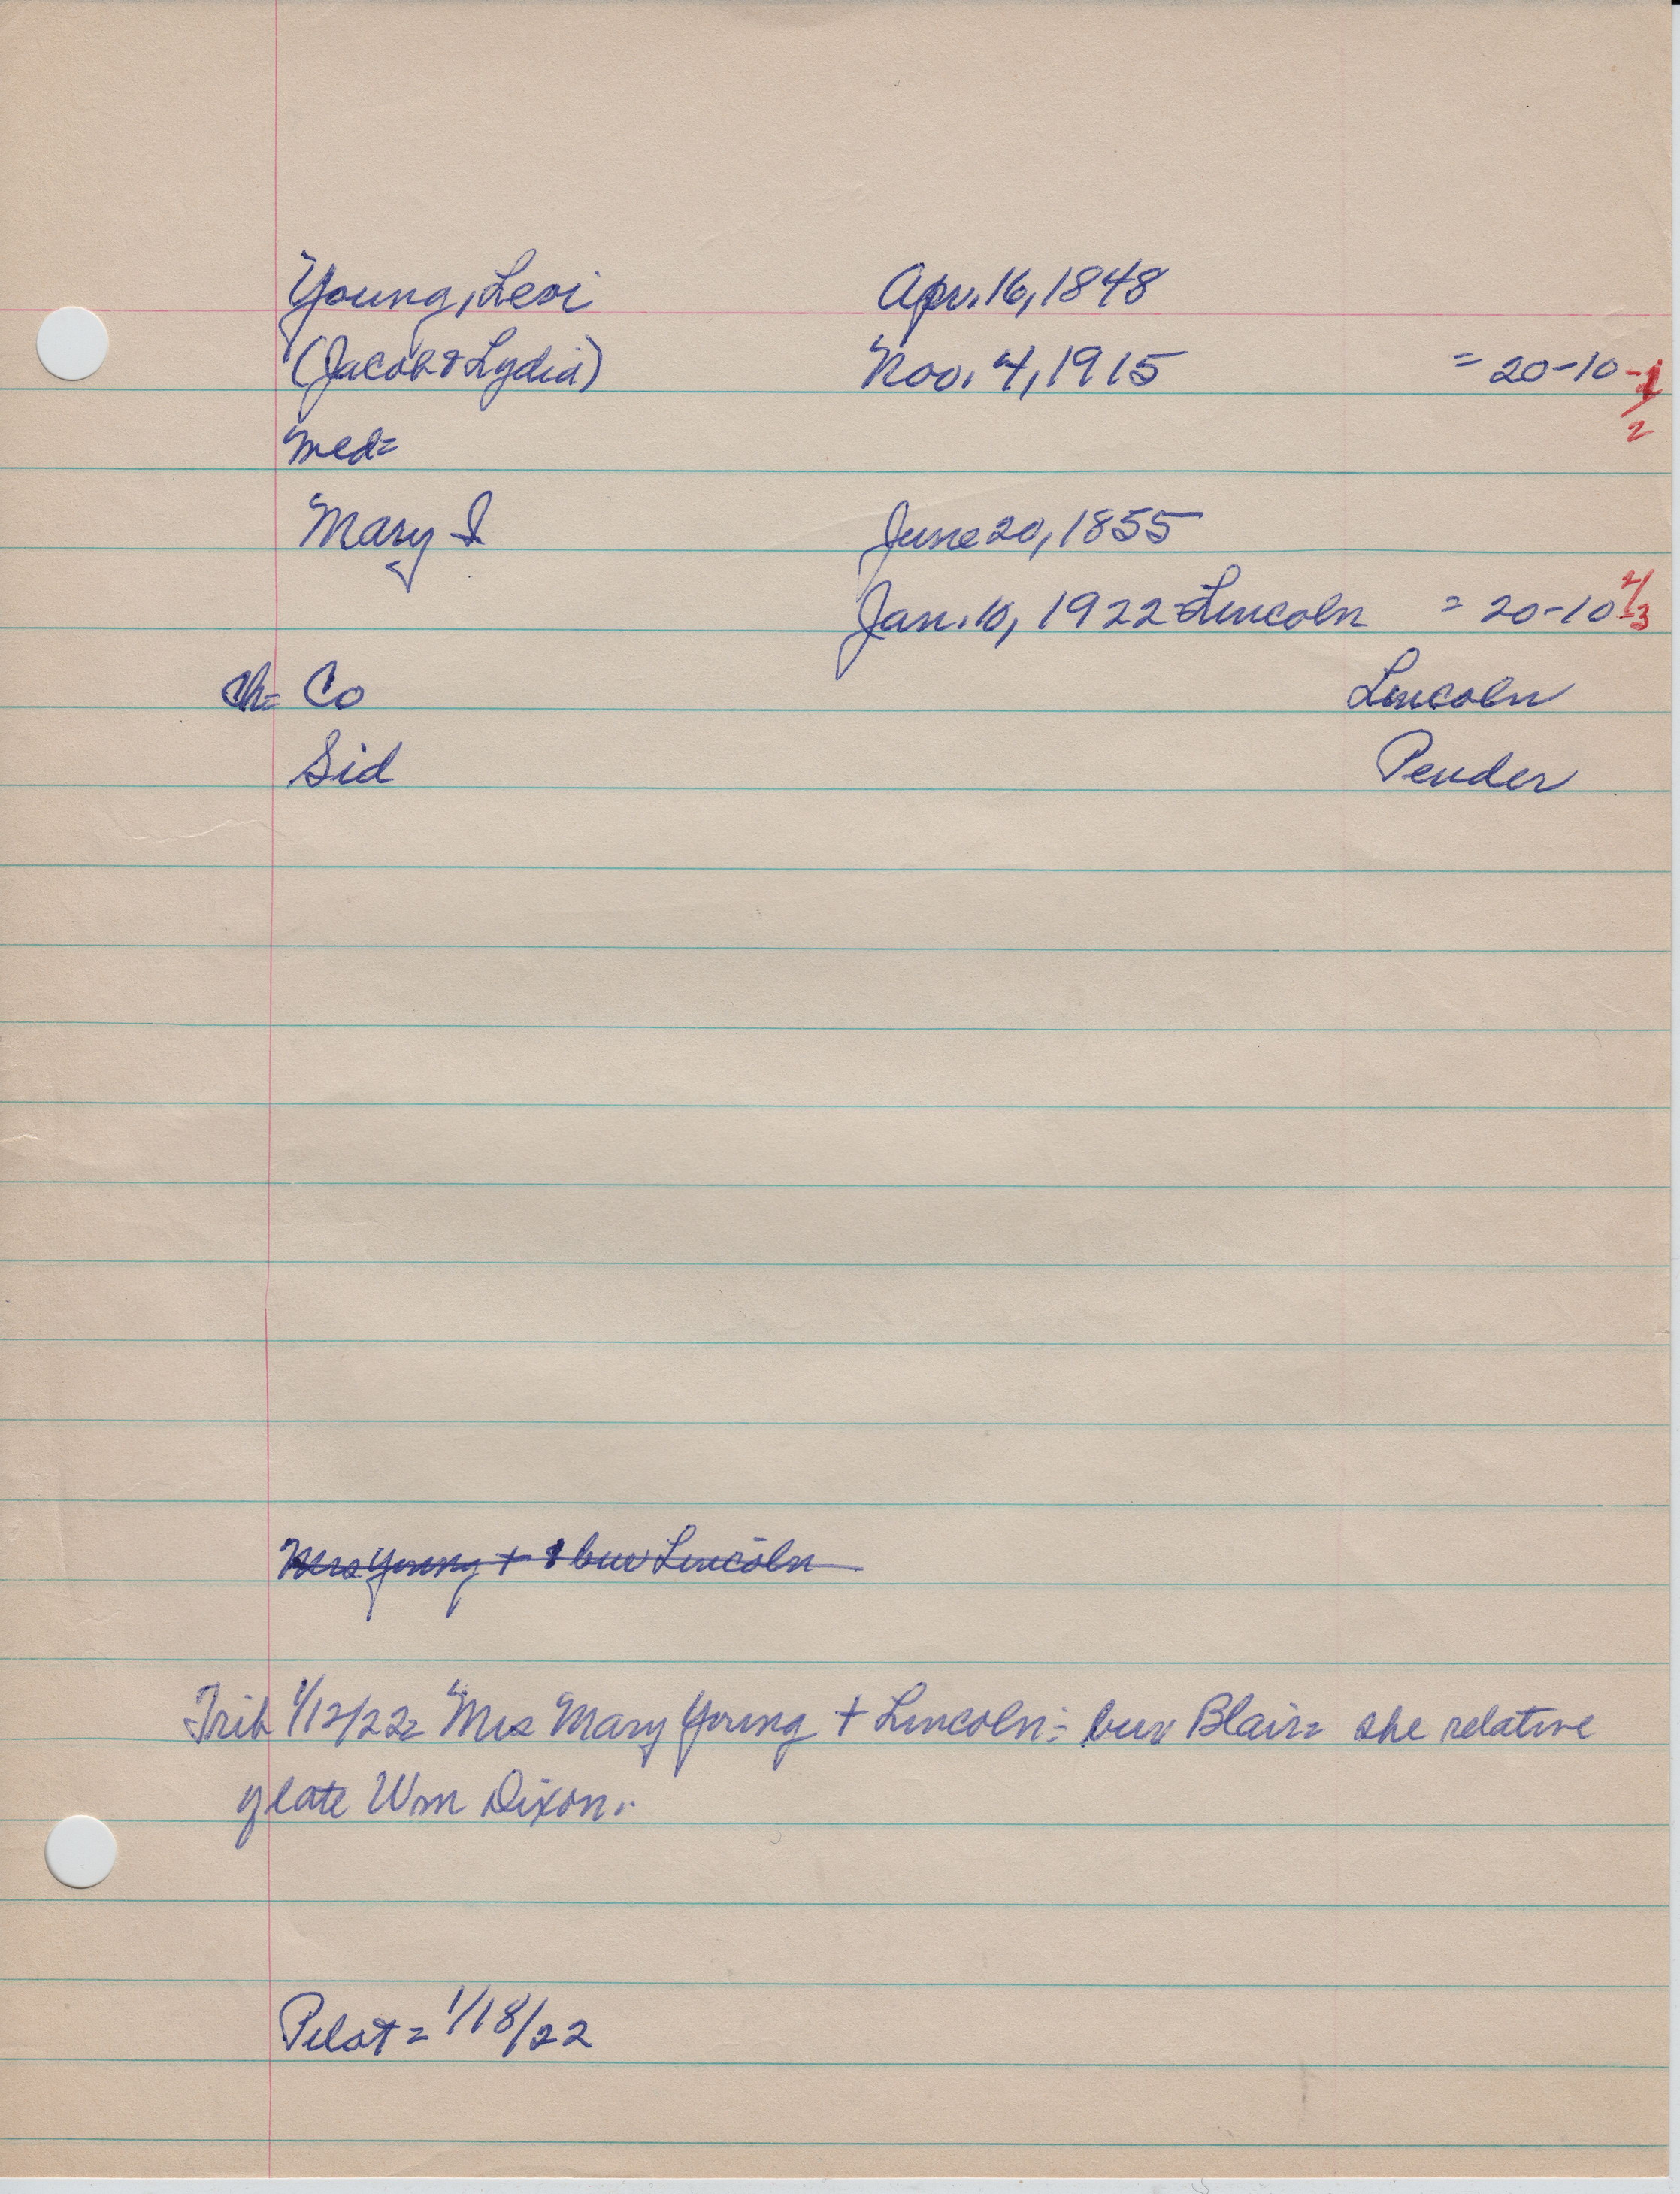 Young, Levi Apr. 16, 1848
(Jacob & Lydia) Nov. 4, 1915 = 20-10-1/2
Med=
Mary I June 20, 1855
Jan. 10, 1922-Lincoln = 20-10 2/3
Ch= Co Lincoln
Sid Pender
Mrs Young + & bur Lincoln
Trib 1/12/22= Mrs Mary Young + Lincoln= bur Blair= she relative
of late Wm Dixon.
Pilot= 1/18/22